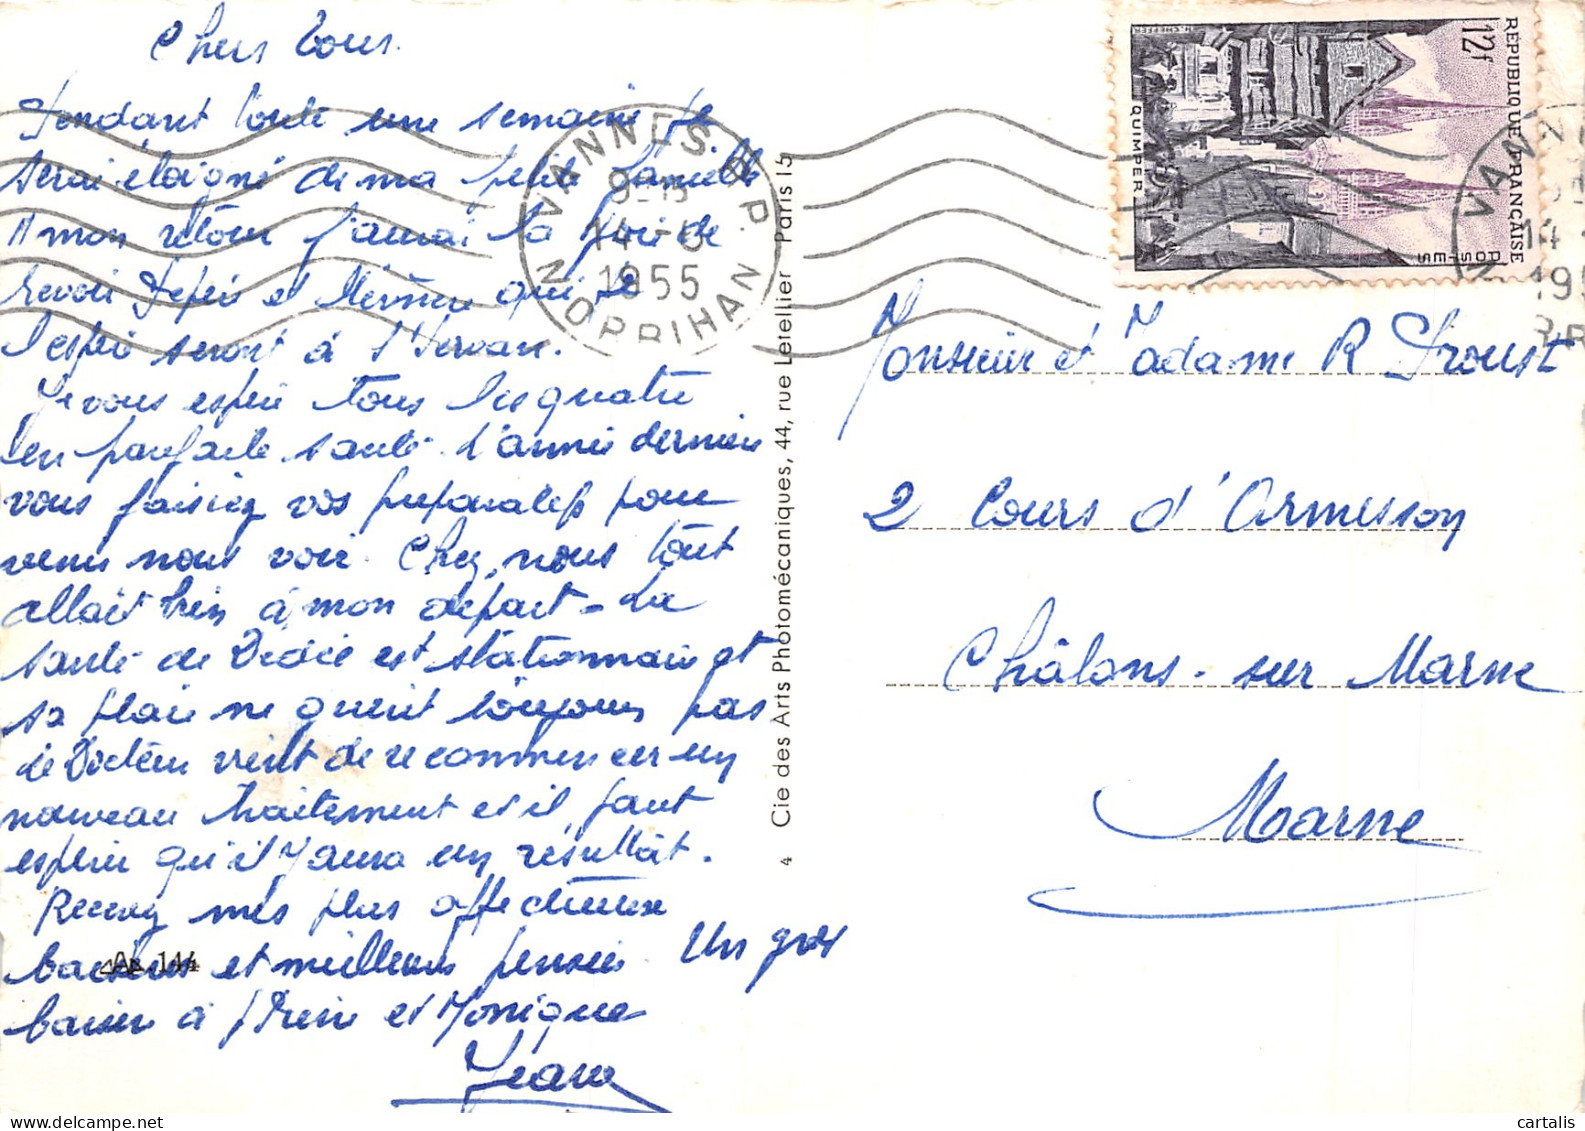 Chers tous.
Pendant toute une semaine je
serai éloigné de ma petite famille
A mon retour j'aurai la joie de
revoir Pépère et Mémère qui je
l'espère seront à St Servan.
Je vous espère tous les quatre
en parfaite santé. L'année dernière
vous faisiez vos préparatifs pour
venir nous voir. Chez nous tout
allait bien à mon départ - La
santé de Dédée est stationnaire et
sa plaie ne guérit toujours pas
le Docteur vient de recommencer un
nouveau traitement et il faut
espérer qu'il y aura un résultat.
Recevez mes plus affectueux
baisers et meilleures pensées. Un gros
baiser à et Monique
Jean
144
4 Cie des Arts Photomécaniques, 44, rue Letellier Paris 15
VANNES R.P.
14-6
1955
MORBIHAN
12f
REPUBLIQUE FRANÇAISE
POSTES
QUIMPER
VANN
14
195
Monsieur et Madame R Proust
2 Cours d'Ormesson
Châlons-sur Marne
Marne
cartalis